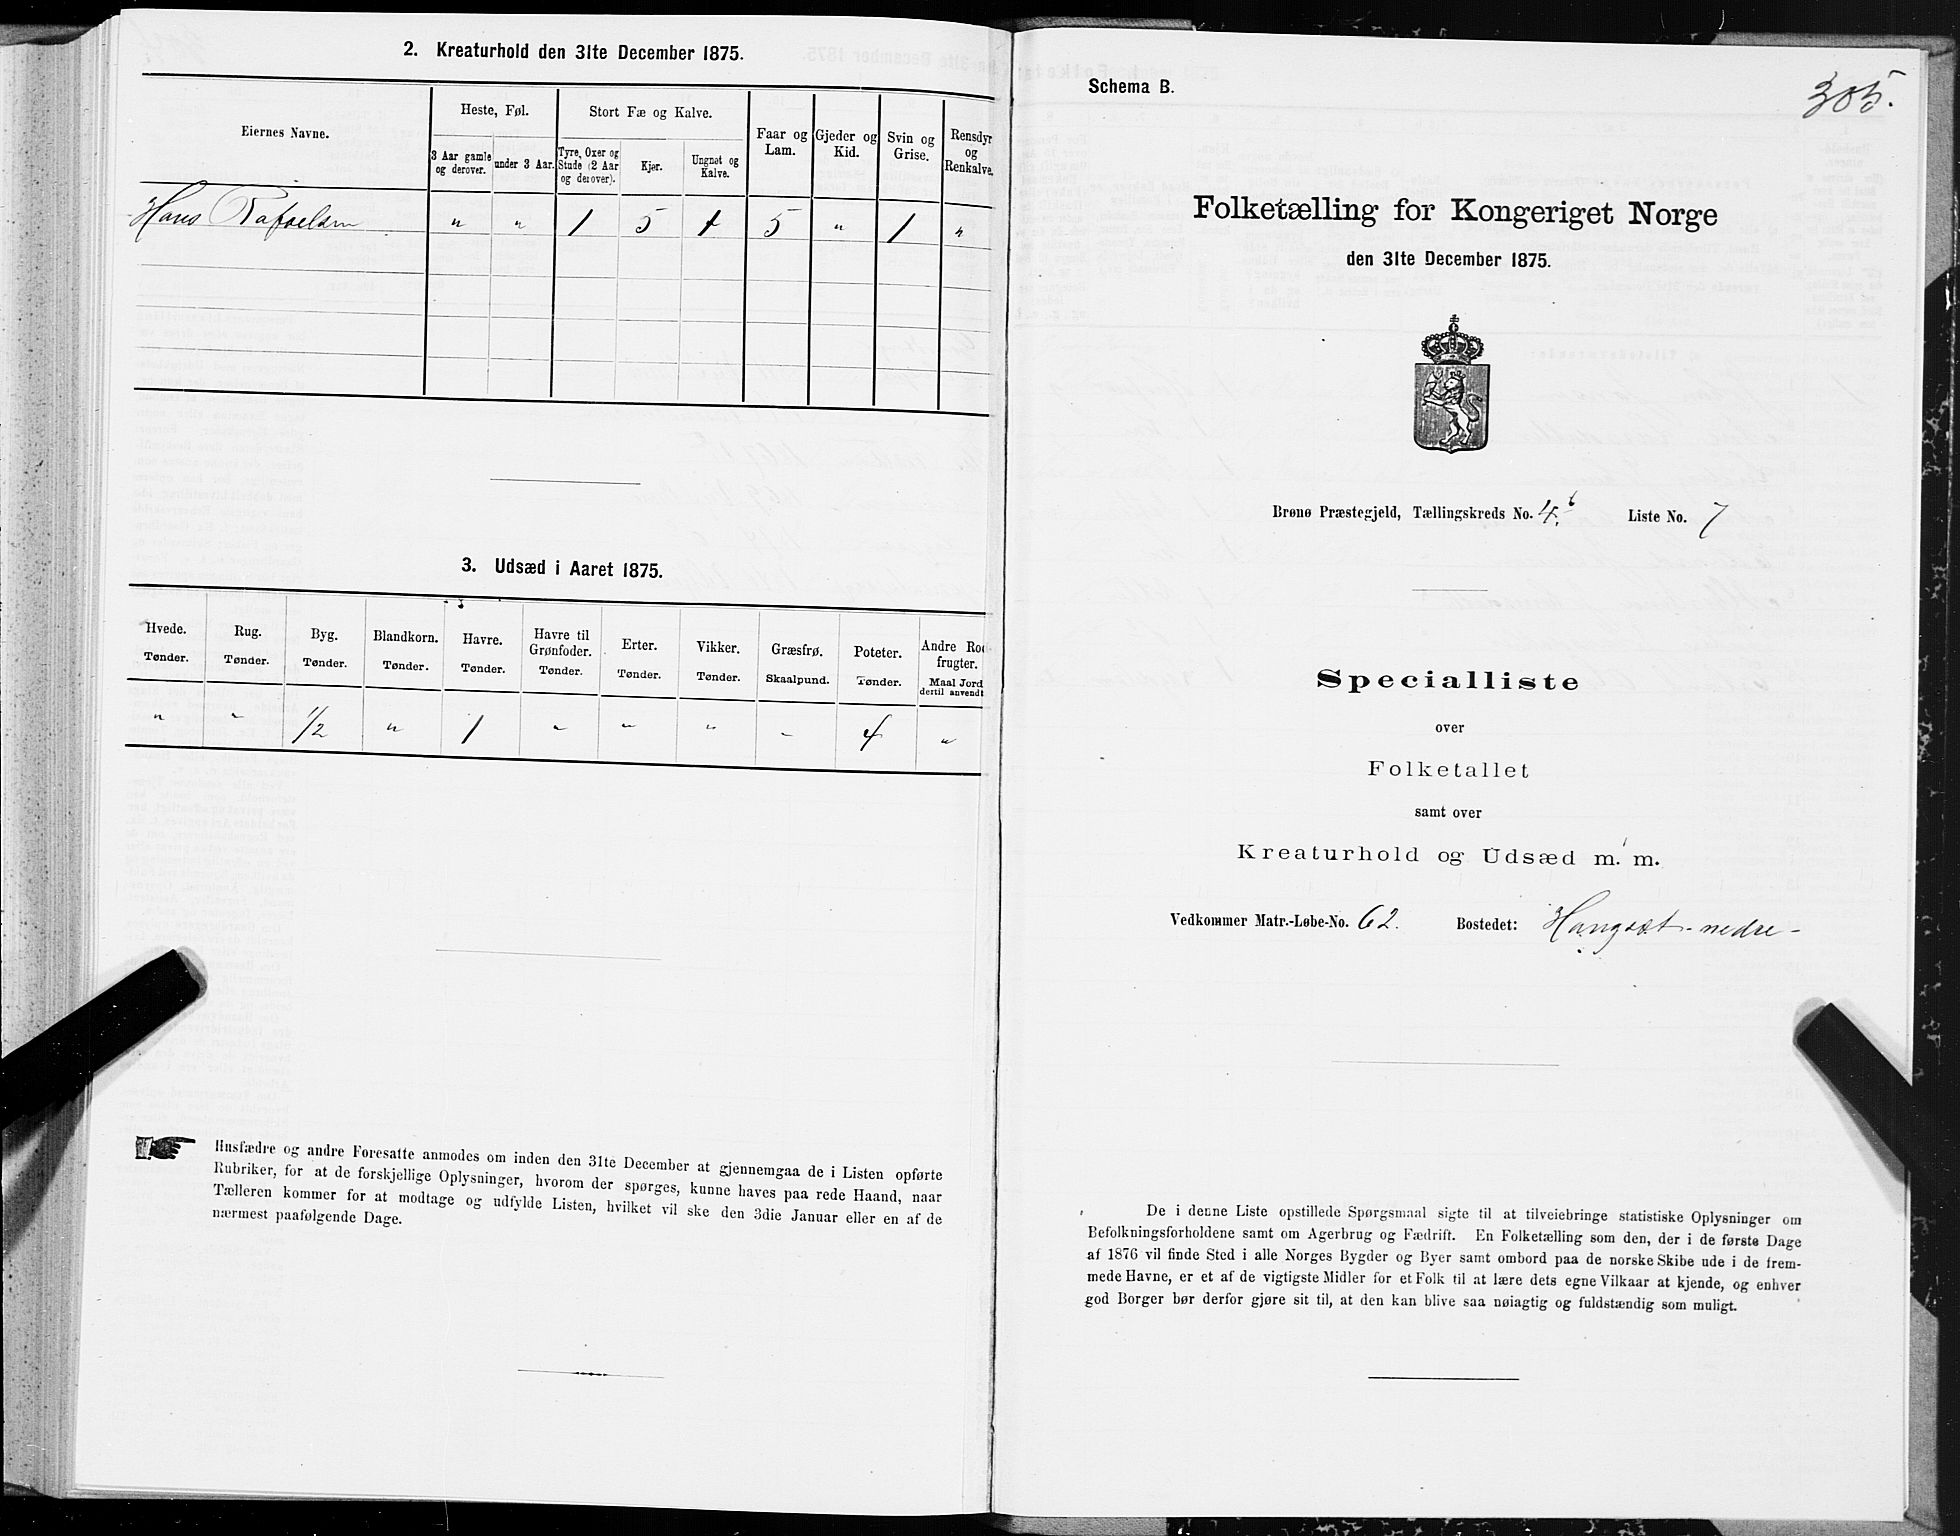 2. Kreaturhold den 31te December 1875.
Eiernes Navne.
Heste, Føl.
Stort Fæ og Kalve.
Faar og Lam.
Gjeder og Kid.
Svin og Grise.
Rensdyr og Renkalve.
3 Aar gamle og derover.
under 3 Aar.
Tyre, Oxer og Stude (2 Aar og derover).
Kjør.
Ungnøt og Kalve.
Hans Rafaelsen " " 1 5 1 5 " 1 "
3. Udsæd i Aaret 1875.
Hvede. Rug. Byg. Blandkorn. Havre. Havre til Grønfoder. Erter. Vikker. Græsfrø. Poteter. Andre Rod frugter.
Tønder. Tønder. Tønder. Tønder. Tønder. Tønder. Tønder. Tønder. Skaalpund. Tønder. Maal Jord dertil anvendt
" " 1/2 " 1 " " " " 4 "
Husfædre og andre Foresatte anmodes om inden den 31te December at gjennemgaa de i Listen opførte
Rubriker, for at de forskjellige Oplysninger, hvorom der spørges, kunne haves paa rede Haand, naar
Tælleren kommer for at modtage og udfylde Listen, hvilket vil ske den 3die Januar eller en af de
nærmest paafølgende Dage.
Schema B.
305.
Folketælling for Kongeriget Norge
den 31te December 1875.
Brønø Præstegjeld, Tællingskreds No. 4.b Liste No. 7
Specialliste
over
Folketallet
samt over
Kreaturhold og Udsæd m. m.
Vedkommer Matr.-Løbe-No. 62. Bostedet: Hongset nedre
De i denne Liste opstillede Spørgsmaal sigte til at tilveiebringe statistiske Oplysninger om
Befolkningsforholdene samt om Agerbrug og Fædrift. En Folketælling som den, der i de første Dage
af 1876 vil finde Sted i alle Norges Bygder og Byer samt ombord paa de norske Skibe ude i de frem-
mede Havne, er et af de vigtigste Midler for et Folk til at lære dets egne Vilkaar at kjende, og enhver
god Borger bør derfor gjøre sit til, at den kan blive saa nøiagtig og fuldstændig som muligt.